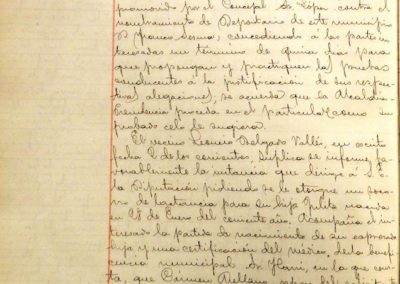 promovido por el Concejal Sr. López contra el
nombramiento de Depositario de este municipio
D. Franco Serna, concediendo á las partes in-
teresadas un término de quince dias para
que propongan y practiquen las pruebas
conducentes á la justificación de sus respec-
tivas alegaciones, se acuerda que la Alcaldia-
Presidencia proceda en el particular como su
probado celo le sugiera.
El vecino Leoncio Delgado Vallés, en escrito
fecha 2 de los corrientes, suplica se informe fa-
vorablemente la instancia que dirige á S.E.
la Diputación pidiendo se le otorgue un socor-
ro de lactancia para su hija Julita nacida
en 28 de Enero del corriente año. Acompaña el in-
teresado la partida de nacimiento de su expresada
hija y una certificación del médico de la benefi-
cencia municipal Sr. en la que cons-
ta, que Cármen Arellano esposa del